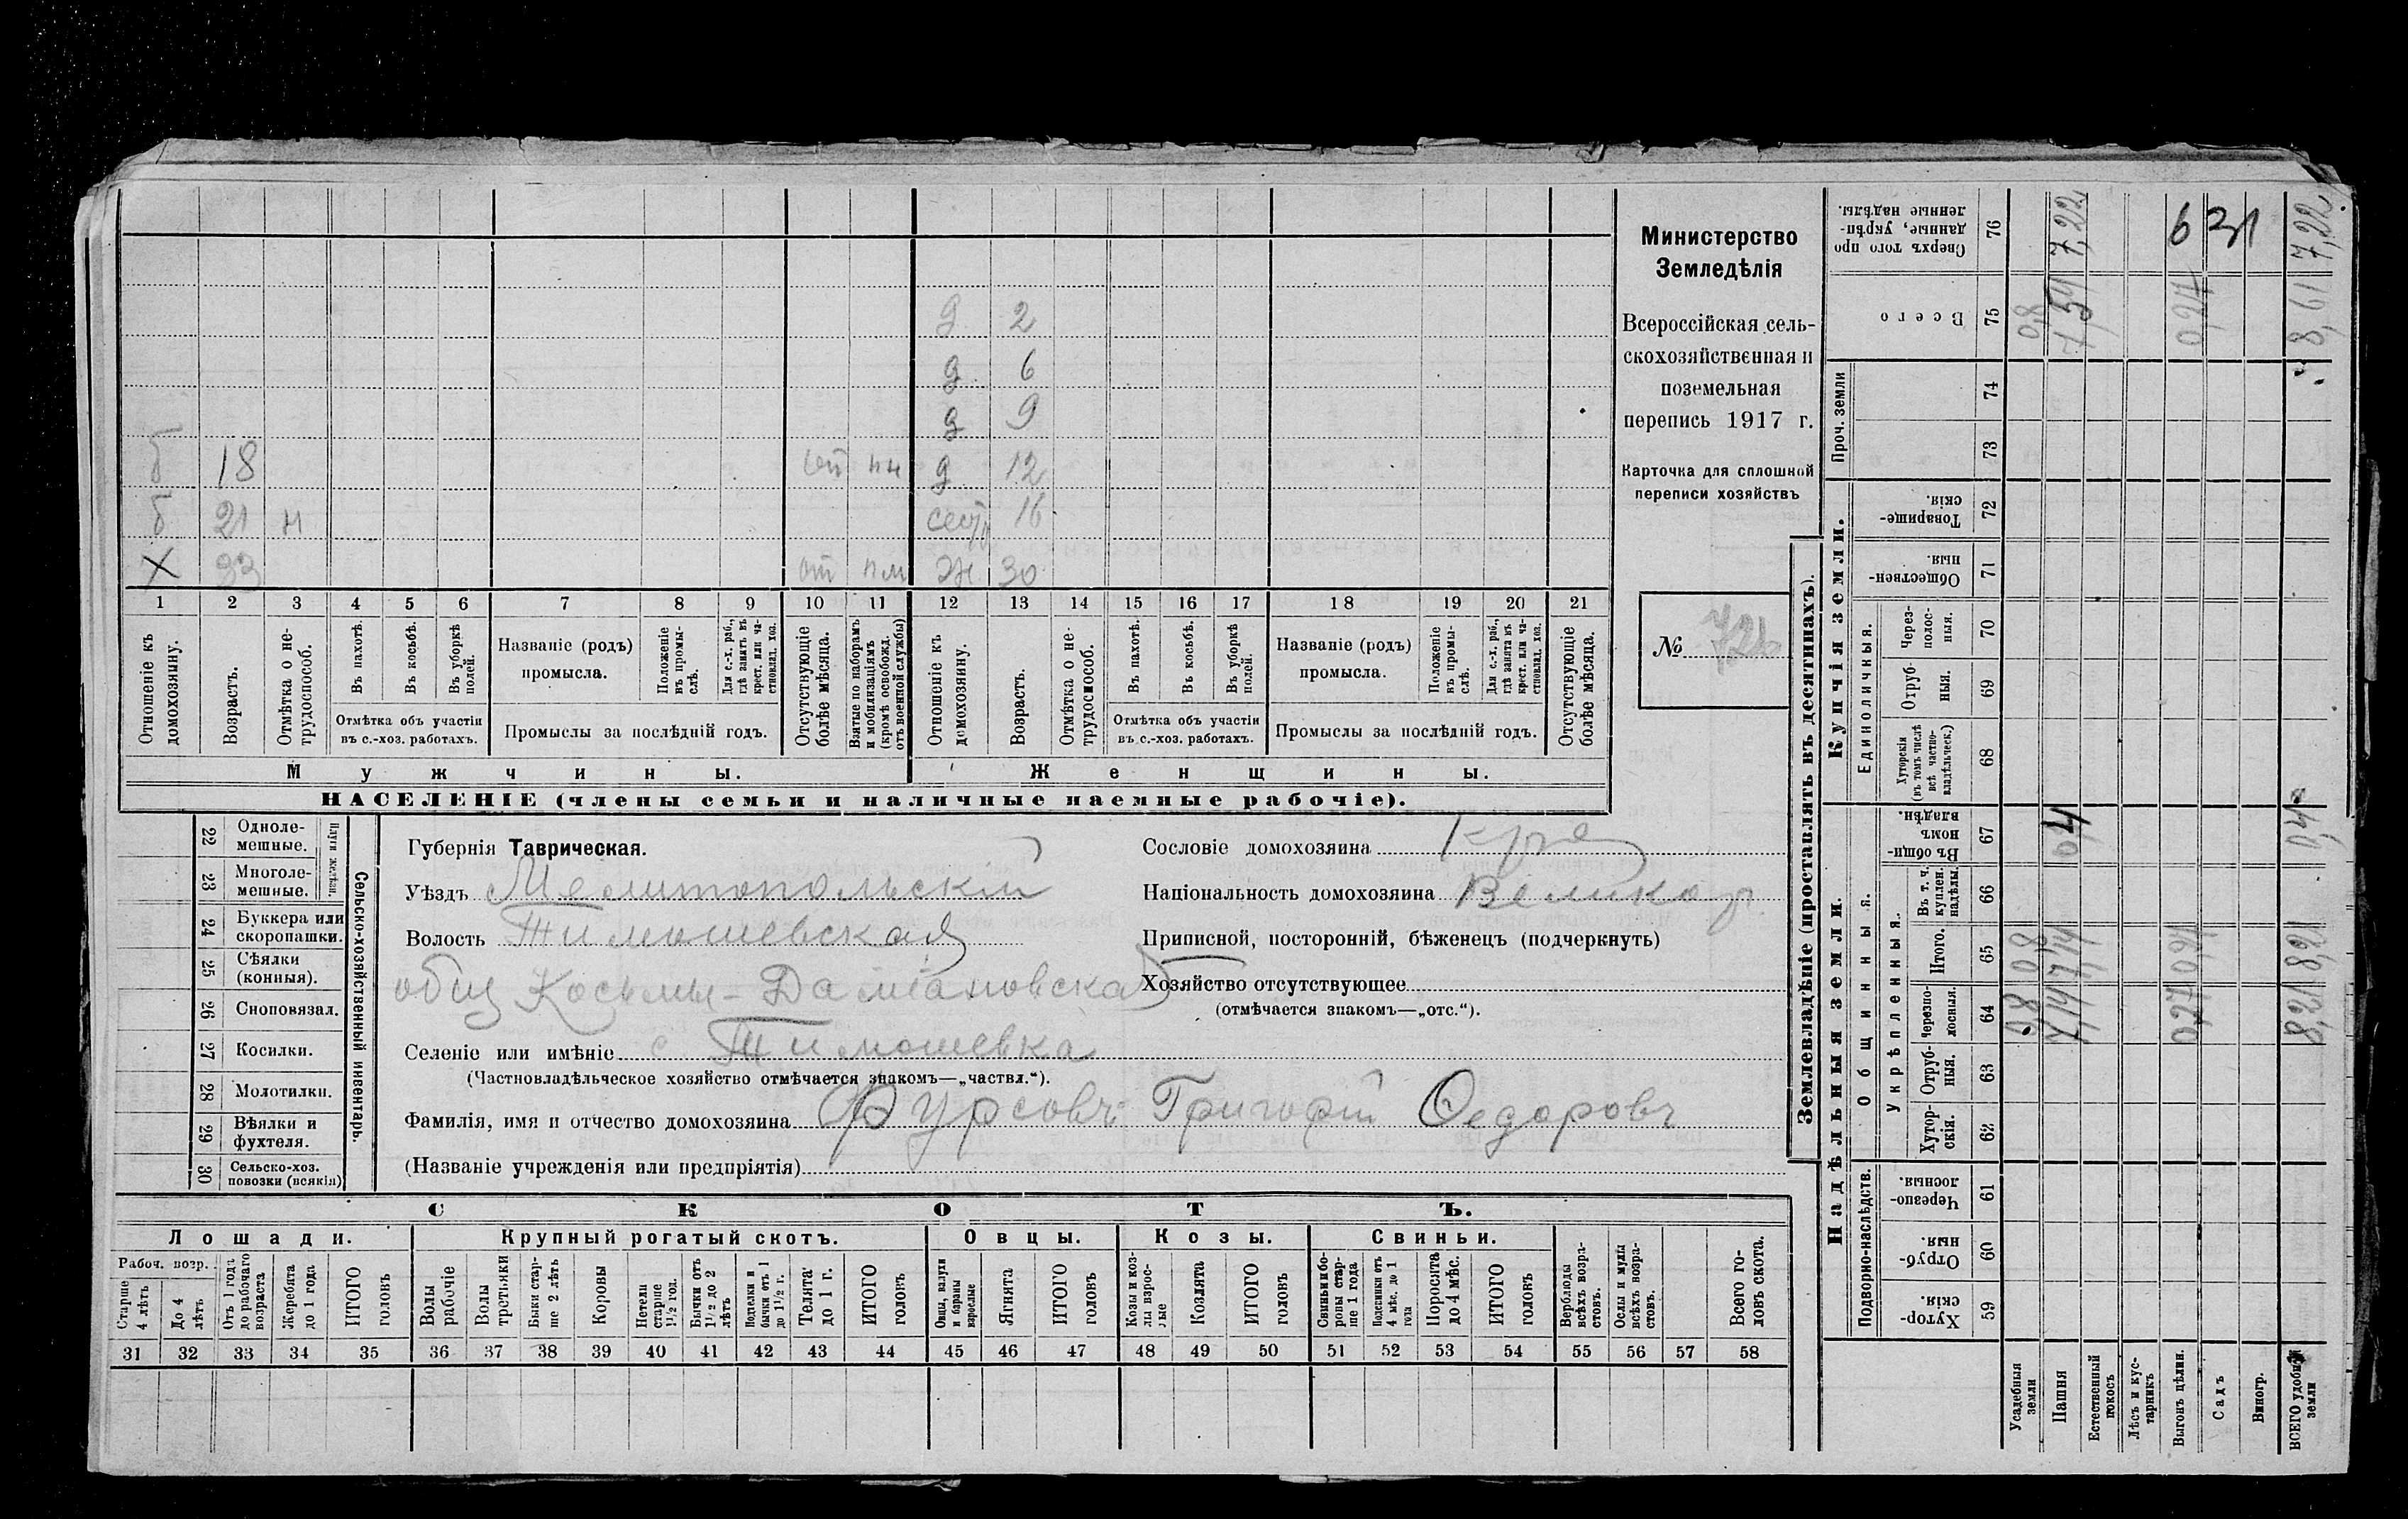 д 2
д 6
д 9
б 18 от нн д 12
б 21 н сестр 16
Х 33 от пм ж 30
1 2 3 4 5 6 7 8 9 10 11 12 13 14 15 16 17 18 19 20 21
Отношеніе къ домохозяину.
Возрастъ.
Отмѣтка о не-трудоспособ.
Въ пахотѣ.
Въ косьбѣ.
Въ уборкѣ полей.
Отмѣтка объ участіи
въ с.-хоз. работахъ.
Названіе (родъ)
промысла.
Положеніе въ промы-слѣ.
Для с.-х. раб., гдѣ занятъ въ крест. или ча-стновлад. хоз.
Промыслы за послѣдній годъ.
Отсутствующіе болѣе мѣсяца.
Взятые по наборамъ и мобилизаціямъ (кромѣ освобожд. отъ военной службы)
Отношеніе къ домохозяину.
Возрастъ.
Отмѣтка о не-трудоспособ.
Въ пахотѣ.
Въ косьбѣ.
Въ уборкѣ полей.
Отмѣтка объ участіи
въ с.-хоз. работахъ.
Названіе (родъ)
промысла.
Положеніе въ промы-слѣ.
Для с.-х. раб., гдѣ занята въ крест. или ча-стновлад. хоз.
Промыслы за послѣдній годъ.
Отсутствующіе болѣе мѣсяца.
Мужчины.
Женщины.
НАСЕЛЕНІЕ (члены семьи и наличные наемные рабочіе).
Министерство
Земледѣлія
Всероссійская сель-
скохозяйственная и
поземельная
перепись 1917 г.
Карточка для сплошной
переписи хозяйствъ
№
Сельско-хозяйственный инвентарь.
22 Одноле-мешные.
23 Многоле-мешные.
24 Буккера или скоропашки.
25 Сѣялки (конныя).
26 Сноповязал.
27 Косилки.
28 Молотилки.
29 Вѣялки и фухтеля.
30 Сельско-хоз. повозки (всякія)
Губернія Таврическая.
Уѣздъ Мелитопольскій
Волость Тимошевская
общ Косьмы-Даміановская
Селеніе или имѣніе с Тимошевка
(Частновладѣльческое хозяйство отмѣчается знакомъ—„частвл.“).
Фамилія, имя и отчество домохозяина Фурсовъ Григорій Ѳедоровъ
(Названіе учрежденія или предпріятія)
Сословіе домохозяина кре
Національность домохозяина Великор
Приписной, посторонній, бѣженецъ (подчеркнуть)
Хозяйство отсутствующее
(отмѣчается знакомъ—„отс.“).
СКОТЪ.
Лошади.
Крупный рогатый скотъ.
Овцы.
Козы.
Свиньи.
Рабоч. возр.
Старше 4 лѣтъ
До 4 лѣтъ
Отъ 1 года до рабочаго возраста
Жеребята до 1 года
ИТОГО головъ
Волы рабочіе
Волы третьяки
Быки стар-ше 2 лѣтъ
Коровы
Нетели старше 1½ год.
Бычки отъ 1½ до 2 лѣтъ
Подтелки и бычки отъ 1 до 1½ г.
Телята до 1 г.
ИТОГО головъ
Овцы, валухи и бараны взрослые
Ягнята
ИТОГО головъ
Козы и коз-лы взрос-лые
Козлята
ИТОГО головъ
Свиньи и бо-ровы стар-ше 1 года
Подсвинки отъ 4 мѣс. до 1 года
Поросята до 4 мѣс.
ИТОГО головъ
Верблюды всѣхъ возра-стовъ.
Ослы и мулы всѣхъ возра-стовъ.
Всего го-ловъ скота.
31 32 33 34 35 36 37 38 39 40 41 42 43 44 45 46 47 48 49 50 51 52 53 54 55 56 57 58
Землевладѣніе (проставлять въ десятинахъ).
Надѣльныя земли.
Купчія земли.
Проч. земли
Подворно-наслѣдств.
Общинныя.
Укрѣпленныя.
Единоличныя.
Хутор-скія. 59
Отруб-ныя. 60
Черезпо-лосныя. 61
Хутор-скія. 62
Отруб-ныя. 63
Черезпо-лосныя. 64
Итого. 65
Въ т. ч. куплен. надѣлы. 66
Въ общи-номъ владѣн. 67
Хуторскія (въ томъ числѣ всѣ частно-владѣльческ.) 68
Отруб-ныя. 69
Через-полос-ныя. 70
Обществен-ныя. 71
Товарище-скія. 72
73
74
Всего 75
Сверхъ того про данные, укрѣп-ленные надѣлы. 76
Усадебныя земли 0,8 0,8 0,8
Пашня 7,14 7,14 0,4 7,54 7,22
Естественный покосъ
Лѣсъ и кус-тарникъ
Выгонъ цѣлин. 0,27 0,27 0,27
631
Садъ
Виногр.
ВСЕГО удобной земли 8,21 8,21 0,4 8,61 7,22